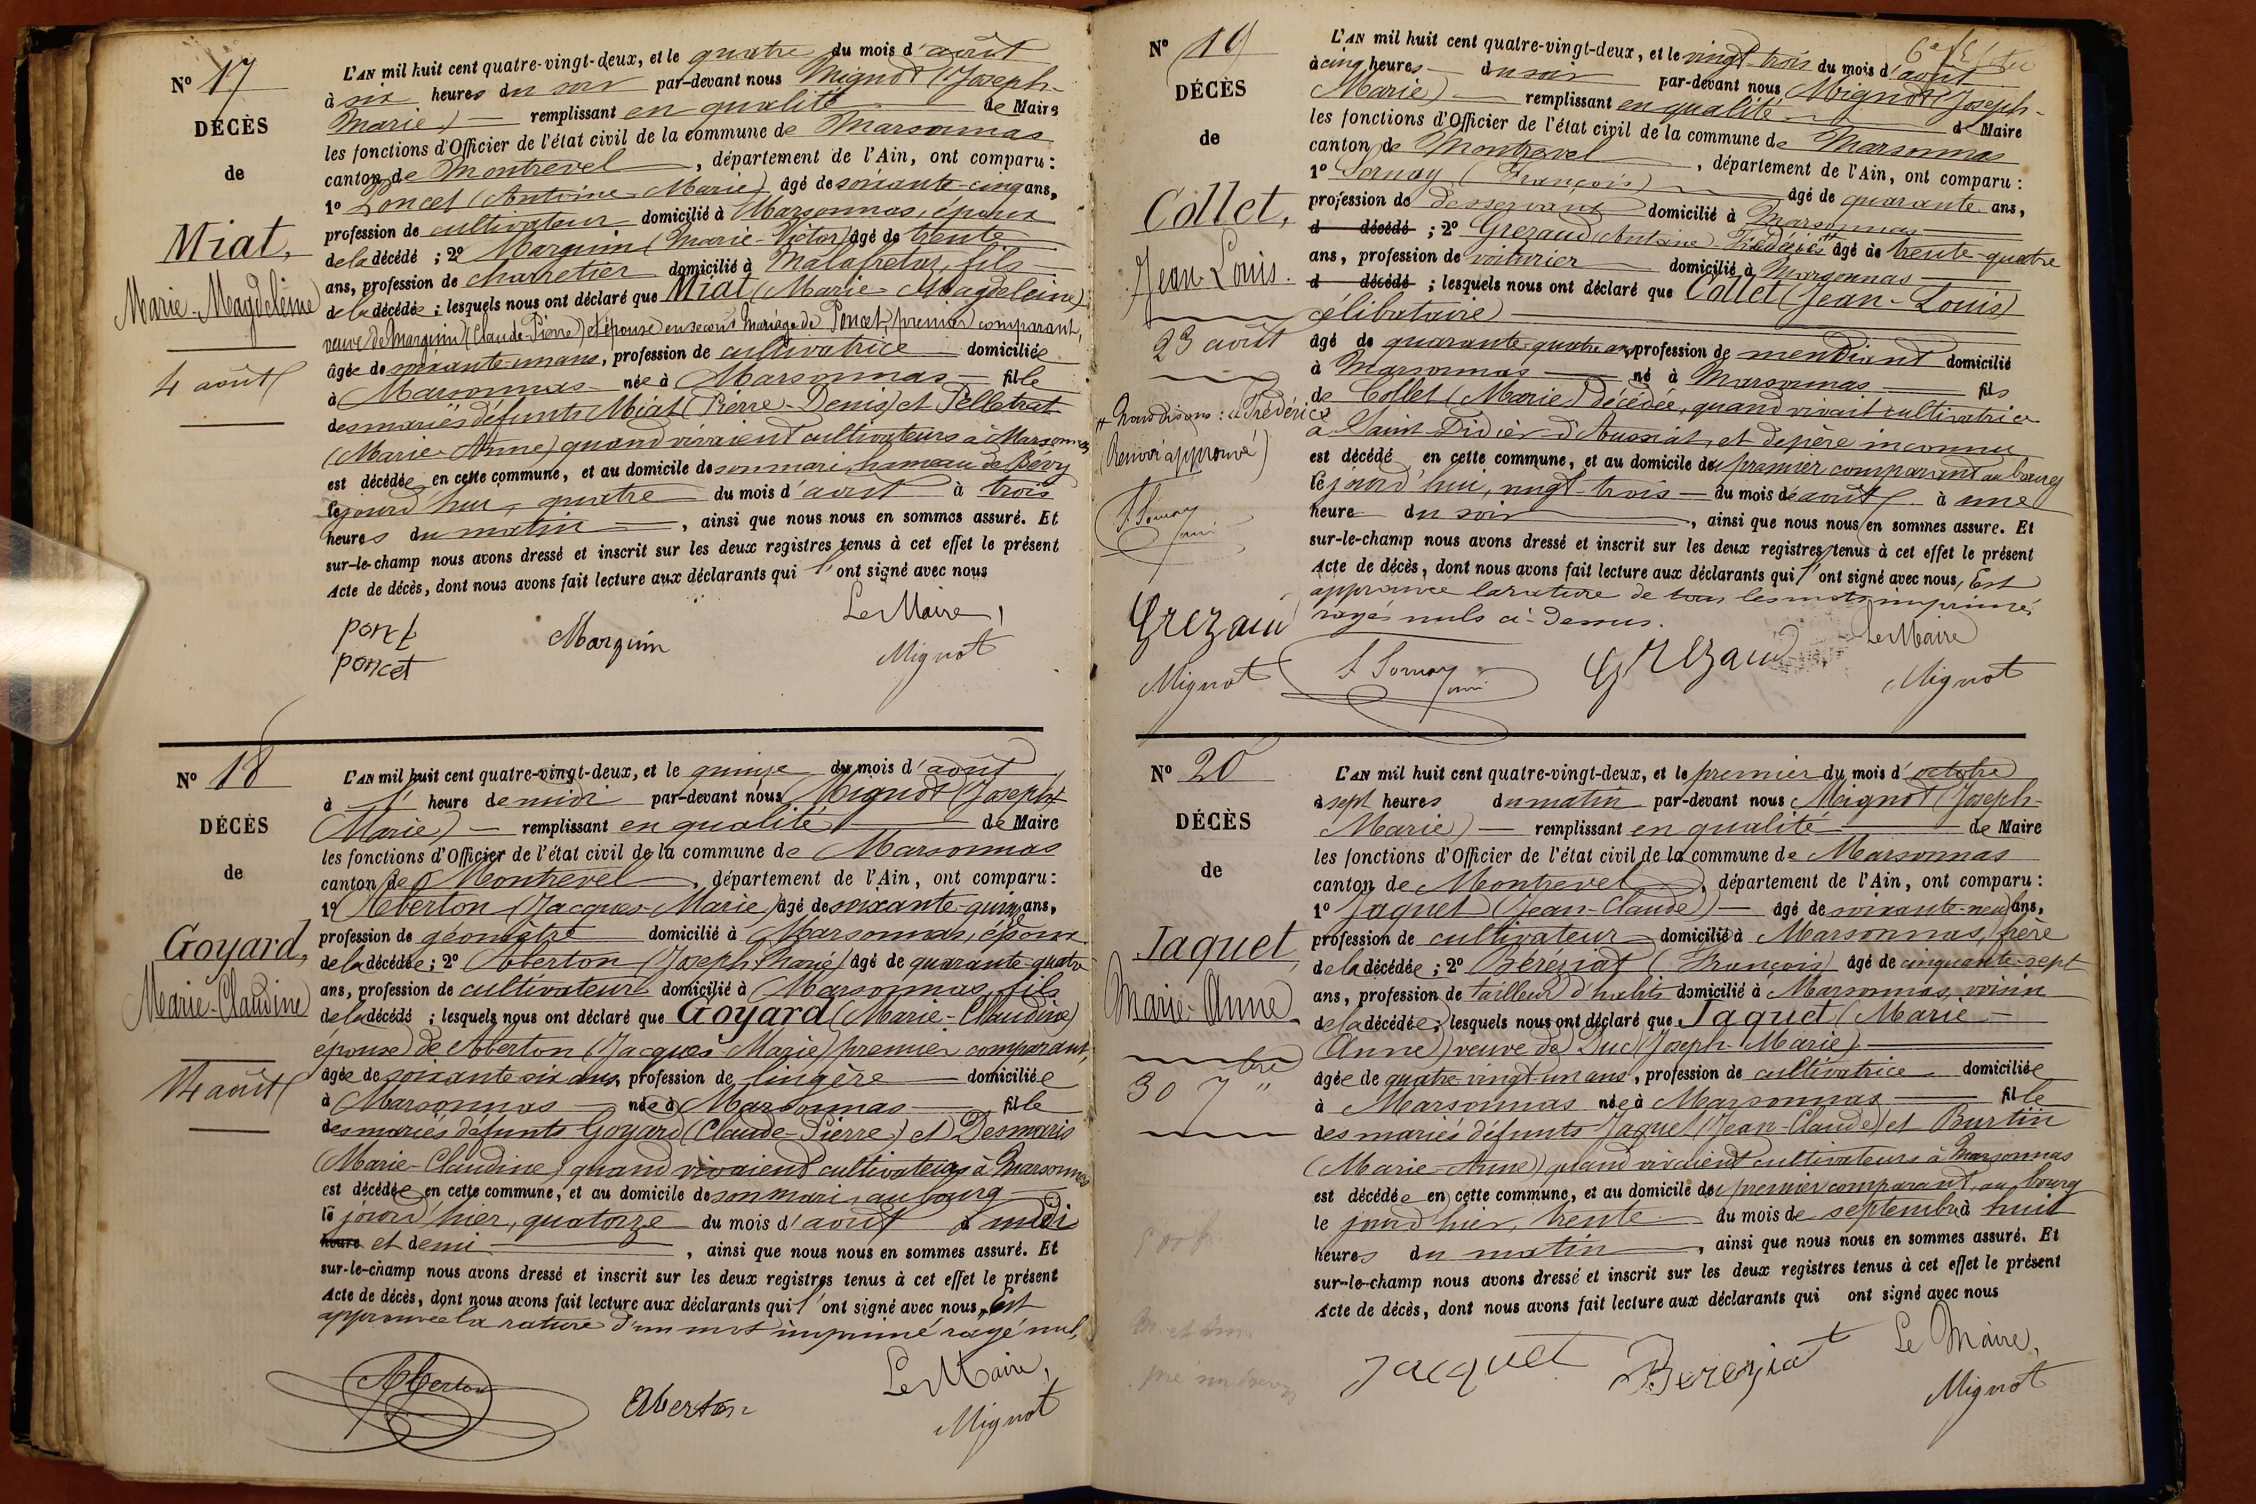 N° 17
DÉCÈS
de
Miat,
Marie-Magdeleine
4 août
L'AN mil huit cent quatre-vingt-deux, et le quatre du mois d'août
à six heures du soir par-devant nous Mignot (Joseph-
Marie) remplissant en qualité de Maire
les fonctions d'Officier de l'état civil de la commune de Marsonnas
canton de Montrevel, département de l'Ain, ont comparu :
1° Poncet (Antoine-Marie) âgé de soixante-cinq ans,
profession de cultivateur domicilié à Marsonnas, époux
de la décédé ; 2° Marguin (Marie-Victor) âgé de trente
ans, profession de charretier domicilié à Malafretaz, fils
de la décédée ; lesquels nous ont déclaré que Miat (Marie-Magdeleine)
veuve de Marguin (Claude-Pierre) et épouse en second mariage de Poncet, premier comparant,
âgée de soixante-un ans, profession de cultivatrice domiciliée
à Marsonnas née à Marsonnas fille
des mariés défunts Miat (Pierre-Denis) et Pelletrat
(Marie-Anne) quand vivaient cultivateurs à Marsonnas
est décédée en cette commune, et au domicile de son mari, hameau de Bévy
le jourd'hui, quatre du mois d'août à trois
heures du matin, ainsi que nous nous en sommes assuré. Et
sur-le-champ nous avons dressé et inscrit sur les deux registres tenus à cet effet le présent
Acte de décès, dont nous avons fait lecture aux déclarants qui l'ont signé avec nous
Le Maire,
poncet Marguin Mignot
N° 18
DÉCÈS
de
Goyard,
Marie-Claudine
14 août
L'AN mil huit cent quatre-vingt-deux, et le quinze du mois d'août
à l' heure de midi par-devant nous Mignot (Joseph-
Marie) remplissant en qualité de Maire
les fonctions d'Officier de l'état civil de la commune de Marsonnas
canton de Montrevel, département de l'Ain, ont comparu :
1° Aberton (Jacques-Marie) âgé de soixante-quinze ans,
profession de géomètre domicilié à Marsonnas, époux
de la décédée ; 2° Aberton (Joseph-Marie) âgé de quarante-quatre
ans, profession de cultivateur domicilié à Marsonnas, fils
de la décédé ; lesquels nous ont déclaré que Goyard (Marie-Claudine)
épouse de Aberton (Jacques-Marie) premier comparant,
âgée de soixante six ans, profession de lingère domiciliée
à Marsonnas née à Marsonnas fille
des mariés défunts Goyard (Claude-Pierre) et Desmaris
(Marie-Claudine) quand vivaient cultivateurs à Marsonnas
est décédée en cette commune, et au domicile de son mari, au bourg
le jourd'hier, quatorze du mois d'août à midi
heure et demi, ainsi que nous nous en sommes assuré. Et
sur-le-champ nous avons dressé et inscrit sur les deux registres tenus à cet effet le présent
Acte de décès, dont nous avons fait lecture aux déclarants qui l'ont signé avec nous, Est
approuvée la rature d'un mot imprimé rayé nul,
Aberton Aberton Le Maire,
Mignot
N° 19
DÉCÈS
de
Collet,
Jean-Louis.
23 août
+ nous disons : Frédéric
(Renvoi approuvé)
F. Sornay
Grezaud
Mignot
L'AN mil huit cent quatre-vingt-deux, et le vingt-trois du mois d'août
à cinq heures du soir par-devant nous Mignot (Joseph-
Marie) remplissant en qualité de Maire
les fonctions d'Officier de l'état civil de la commune de Marsonnas
canton de Montrevel, département de l'Ain, ont comparu :
1° Sornay (François) âgé de quarante ans,
profession de desservant domicilié à Marsonnas
d décédé ; 2° Grezaud (Antoine-Frédéric)+ âgé de trente-quatre
ans, profession de voiturier domicilié à Marsonnas
d décédé ; lesquels nous ont déclaré que Collet (Jean-Louis)
célibataire
âgé de quarante-quatre ans, profession de mendiant domicilié
à Marsonnas né à Marsonnas fils
de Collet (Marie) décédée, quand vivait cultivatrice
à Saint-Didier-d'Aussiat, et de père inconnu
est décédé en cette commune, et au domicile du premier comparant au bourg
le jourd'hui, vingt-trois du mois de août à une
heure du soir, ainsi que nous nous en sommes assuré. Et
sur-le-champ nous avons dressé et inscrit sur les deux registres tenus à cet effet le présent
Acte de décès, dont nous avons fait lecture aux déclarants qui l'ont signé avec nous, Est
approuvée la rature de tous les mots imprimés
rayés nuls ci-dessus.
F. Sornay Grezaud Le Maire
Mignot
N° 20
DÉCÈS
de
Jaquet,
Marie-Anne
30 7bre
L'AN mil huit cent quatre-vingt-deux, et le premier du mois d'octobre
à sept heures du matin par-devant nous Mignot (Joseph-
Marie) remplissant en qualité de Maire
les fonctions d'Officier de l'état civil de la commune de Marsonnas
canton de Montrevel, département de l'Ain, ont comparu :
1° Jaquet (Jean-Claude) âgé de soixante-neuf ans,
profession de cultivateur domicilié à Marsonnas, frère
de la décédée ; 2° Bereziat (François) âgé de cinquante-sept
ans, profession de tailleur d'habits domicilié à Marsonnas, voisin
de la décédée ; lesquels nous ont déclaré que Jaquet (Marie-
Anne) veuve de Duc (Joseph-Marie)
âgée de quatre-vingt-un ans, profession de cultivatrice domiciliée
à Marsonnas née à Marsonnas fille
des mariés défunts Jaquet (Jean-Claude) et Burtin
(Marie-Anne) quand vivaient cultivateurs à Marsonnas
est décédée en cette commune, et au domicile du premier comparant, au bourg
le jourd'hier, trente du mois de septembre à huit
heures du matin, ainsi que nous nous en sommes assuré. Et
sur-le-champ nous avons dressé et inscrit sur les deux registres tenus à cet effet le présent
Acte de décès, dont nous avons fait lecture aux déclarants qui ont signé avec nous
Jacquet Bereziat Le Maire,
Mignot